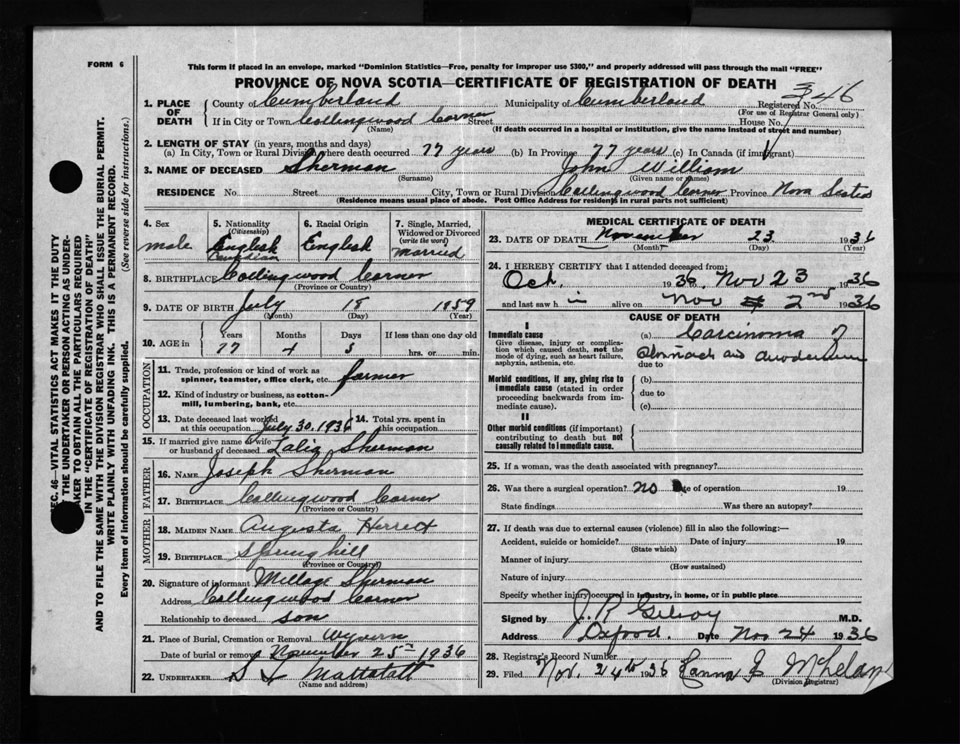 FORM 6
This form if placed in an envelope, marked "Dominion Statistics—Free, penalty for improper use $300," and properly addressed will pass through the mail "FREE"
PROVINCE OF NOVA SCOTIA—CERTIFICATE OF REGISTRATION OF DEATH
1. PLACE OF DEATH
County of Cumberland Municipality of Cumberland Registered No. 346
(For use of Registrar General only)
If in City or Town Collingwood Corner Street House No.
(Name) (If death occurred in a hospital or institution, give the name instead of street and number)
2. LENGTH OF STAY (in years, months and days)
(a) In City, Town or Rural Division where death occurred 77 years (b) In Province 77 years (c) In Canada (if immigrant)
3. NAME OF DECEASED Sherman John William
(Surname) (Given name or names)
RESIDENCE No. Street City, Town or Rural Division Collingwood Corner Province Nova Scotia
(Residence means usual place of abode. Post Office Address for residents in rural parts not sufficient)
4. Sex male
5. Nationality (Citizenship) English Canadian
6. Racial Origin English
7. Single, Married, Widowed or Divorced (write the word) married
8. BIRTHPLACE Collingwood Corner
(Province or Country)
9. DATE OF BIRTH July 18 1859
(Month) (Day) (Year)
10. AGE in Years Months Days If less than one day old
77 4 5 hrs. or min.
OCCUPATION
11. Trade, profession or kind of work as spinner, teamster, office clerk, etc. farmer
12. Kind of industry or business, as cotton-mill, lumbering, bank, etc.
13. Date deceased last worked at this occupation July 30, 1936 14. Total yrs. spent in this occupation
15. If married give name of wife or husband of deceased Sherman
FATHER
16. NAME Joseph Sherman
17. BIRTHPLACE Collingwood Corner
(Province or Country)
MOTHER
18. MAIDEN NAME Augusta Herrett
19. BIRTHPLACE Springhill
(Province or Country)
20. Signature of informant Millage Sherman
Address Collingwood Corner
Relationship to deceased son
21. Place of Burial, Cremation or Removal Wyvern
Date of burial or removal November 25th 1936
22. UNDERTAKER Mattatall
(Name and address)
MEDICAL CERTIFICATE OF DEATH
23. DATE OF DEATH November 23 1936
(Month) (Day) (Year)
24. I HEREBY CERTIFY that I attended deceased from:
Oct. 1936, Nov 23 1936
and last saw him alive on Nov 2nd 1936
CAUSE OF DEATH
I
Immediate cause (a) Carcinoma of
Give disease, injury or complication which caused death, not the mode of dying, such as heart failure, asphyxia, asthenia, etc.
stomach and duodenum
due to
Morbid conditions, if any, giving rise to immediate cause (stated in order proceeding backwards from immediate cause).
(b)
due to
(c)
II
Other morbid conditions (if important) contributing to death but not causally related to immediate cause.
25. If a woman, was the death associated with pregnancy?
26. Was there a surgical operation? no Date of operation 19
State findings Was there an autopsy?
27. If death was due to external causes (violence) fill in also the following:—
Accident, suicide or homicide? Date of injury 19
(State which)
Manner of injury
(How sustained)
Nature of injury
Specify whether injury occurred in industry, in home, or in public place
Signed by J. R. Gilroy M.D.
Address Oxford. Date Nov 24 1936
28. Registrar's Record Number
29. Filed Nov. 24th 1936
(Division Registrar)
SEC. 46—VITAL STATISTICS ACT MAKES IT THE DUTY OF THE UNDERTAKER OR PERSON ACTING AS UNDERTAKER TO OBTAIN ALL THE PARTICULARS REQUIRED IN THE "CERTIFICATE OF REGISTRATION OF DEATH"
AND TO FILE THE SAME WITH THE DIVISION REGISTRAR WHO SHALL ISSUE THE BURIAL PERMIT.
WRITE PLAINLY WITH UNFADING INK. THIS IS A PERMANENT RECORD.
Every item of information should be carefully supplied. (See reverse side for instructions.)